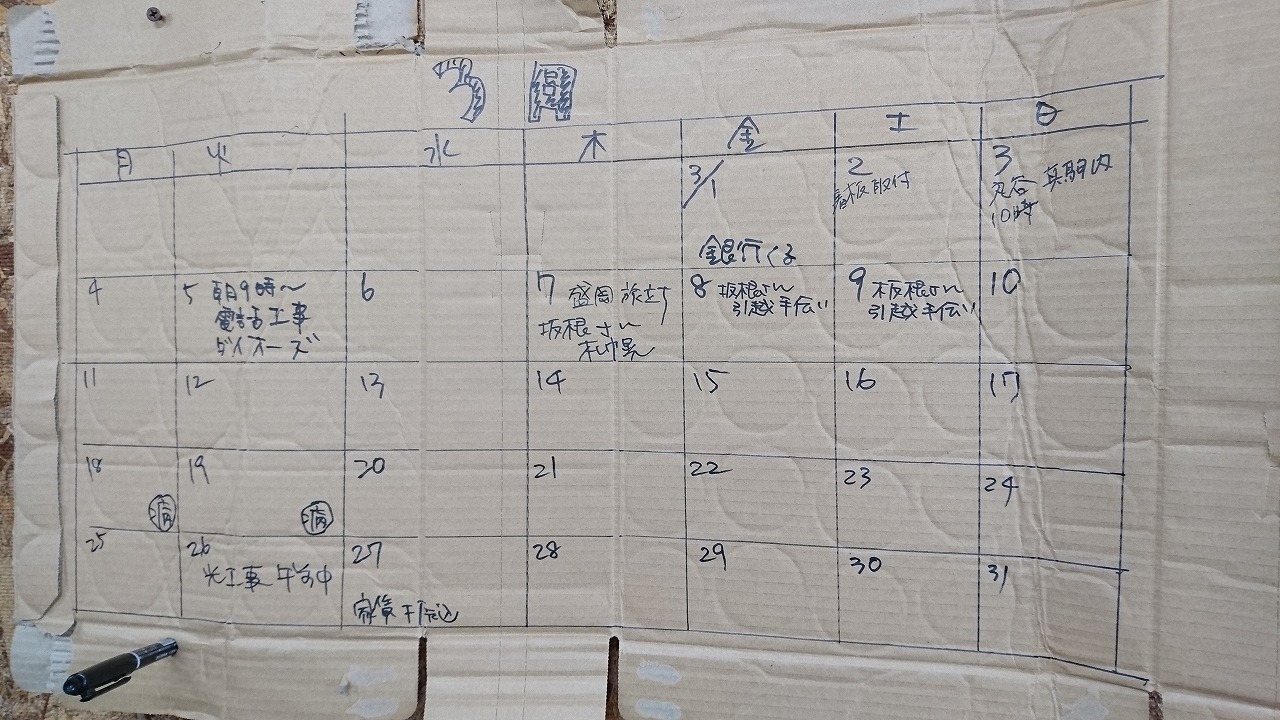 3月
月 火 水 木 金 土 日
3/1
銀行くる
2
看板取付
3
10時
4
5 朝9時〜
電話工事
ダイオーズ
6
7 盛岡 旅立ち
坂根さん
札幌へ
8 坂根さん
引越手伝い
9 坂根さん
引越手伝い
10
11
12
13
14
15
16
17
18
病
19
病
20
21
22
23
24
25
26
光工事 午前中
27
家賃
28
29
30
31